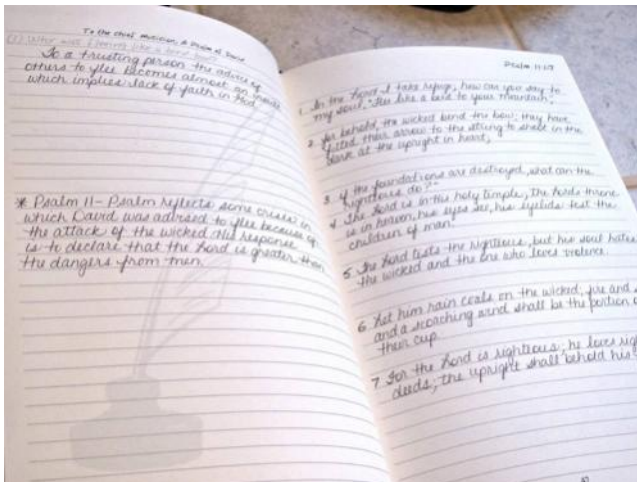 To the chief Musician, A Psalm of David
(1) What was fleeing like a bird
To a trusting person the advice of
others to flee becomes almost an insult
which implies lack of faith in God.
* Psalm 11- Psalm reflects some crisis in
which David was advised to flee because of
the attack of the wicked. His response
is to declare that the Lord is greater than
the dangers from men.
Psalm 11:1-7
1 In the Lord I take refuge; how can you say to
my soul, "Flee like a bird to your mountain,
2 for behold, the wicked bend the bow; they have
fitted their arrow to the string to shoot in the
dark at the upright in heart;
3 if the foundations are destroyed, what can the
righteous do?"
4 The Lord is in his holy temple; the Lords throne
is in heaven; his eyes see, his eyelids test the
children of man.
5 The Lord tests the righteous, but his soul hates
the wicked and the one who loves violence.
6 Let him rain coals on the wicked; fire and
and a scorching wind shall be the portion of
their cup.
7 For the Lord is righteous; he loves
deeds; the upright shall behold his